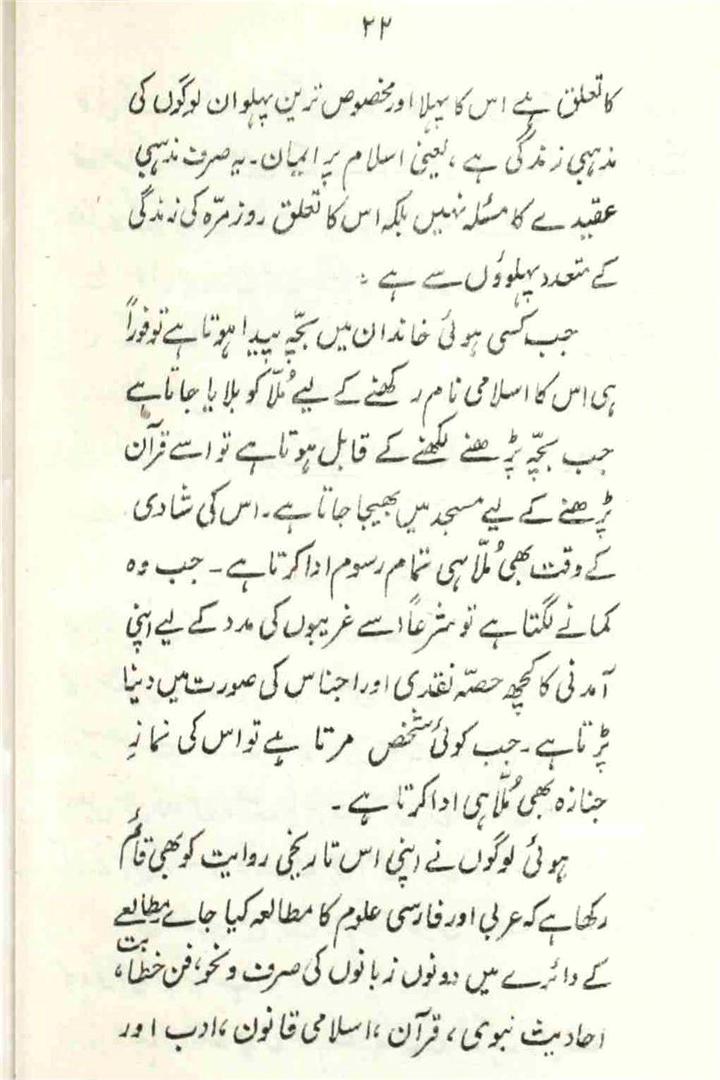 ۲۲
کا تعلق ہے اس کا پہلا اور مخصوص ترین پہلو ان لوگوں کی
مذہبی زندگی ہے ، یعنی اسلام پر ایمان ۔ یہ صرف مذہبی
عقیدے کا مسئلہ نہیں بلکہ اس کا تعلق روزمرّہ کی زندگی
کے متعدد پہلوؤں سے ہے ۔
جب کسی ہوئی خاندان میں بچّہ پیدا ہوتا ہے تو فوراً
ہی اس کا اسلامی نام رکھنے کے لیے مُلّا کو بلایا جاتا ہے
جب بچّہ پڑھنے لکھنے کے قابل ہوتا ہے تو اسے قرآن
پڑھنے کے لیے مسجد میں بھیجا جاتا ہے ۔ اس کی شادی
کے وقت بھی مُلّا ہی تمام رسوم ادا کرتا ہے ۔ جب وہ
کمانے لگتا ہے تو شرعاً اسے غریبوں کی مدد کے لیے اپنی
آمدنی کا کچھ حصّہ نقدی اور اجناس کی صورت میں دینا
پڑتا ہے ۔ جب کوئی شخص مرتا ہے تو اس کی نمازِ
جنازہ بھی مُلّا ہی ادا کرتا ہے ۔
ہوئی لوگوں نے اپنی اس تاریخی روایت کو بھی قائم
رکھا ہے کہ عربی اور فارسی علوم کا مطالعہ کیا جاے مطالعے
کے دائرے میں دونوں زبانوں کی صرف و نحو، فن خطابت،
احادیث نبوی ، قرآن ، اسلامی قانون ، ادب اور